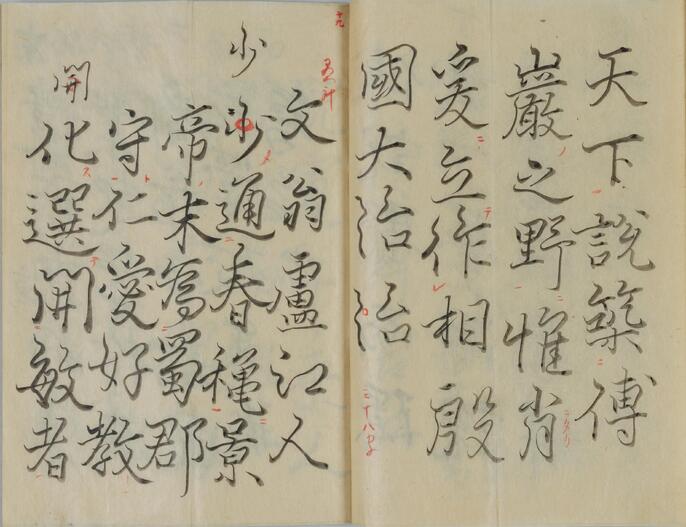 天下說築傅
巖之野惟肖
爰立作相殷
國大治治
文翁廬江人
少沙通春穐景
帝末為蜀郡
守仁愛好教
開化選開敏者